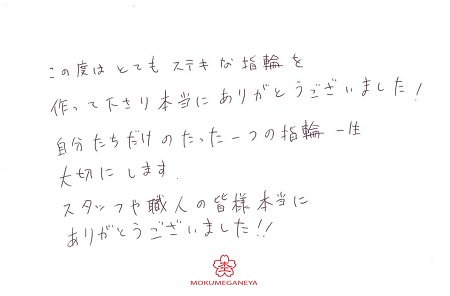 この度は とても ステキな 指輪を
作って下さり本当に ありがとうございました!
自分たちだけの たった一つの指輪 一生
大切に します.
スタッフや職人の皆様本当に
ありがとうございました!!
MOKUMEGANEYA